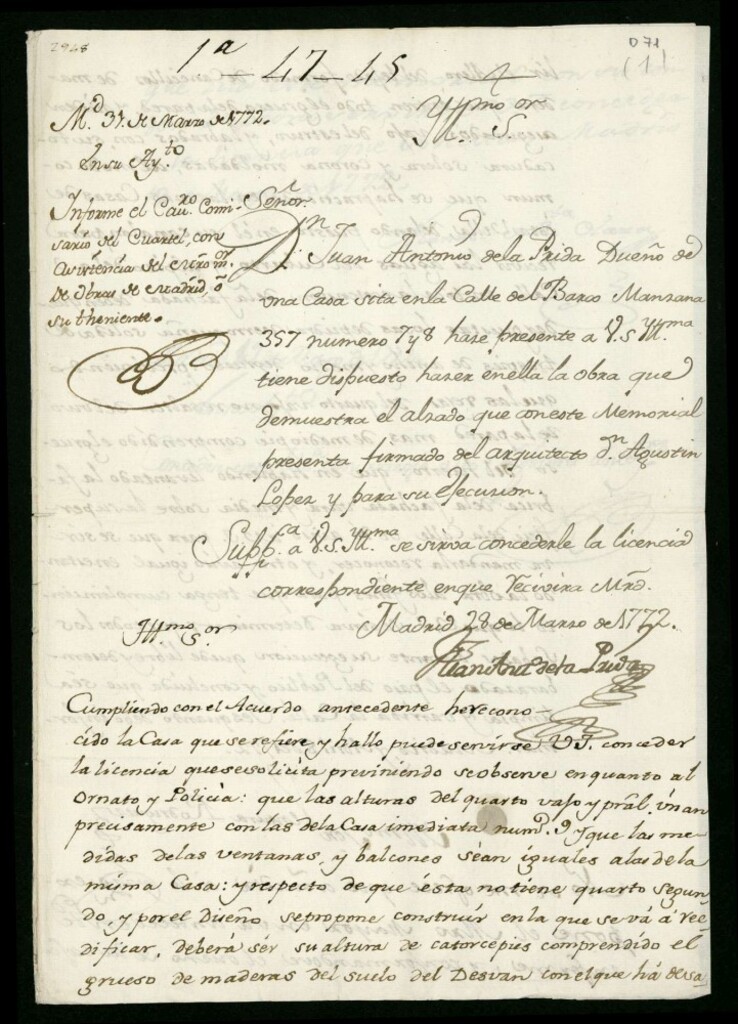 2968
071
(1)
1ª 47-45
Yllmo Sor
Md. 31. de Marzo de 1772.
En su Ayto
Informe el Cauro. Comi-
sario del Cuartel, con
asistencia del Mro mor.
de obras de Madrid, o
su theniente.
Señor.
Dn. Juan Antonio de la Prida Dueño de
una Casa sita en la Calle del Barco Manzana
357 numero 7 y 8 haze presente a V.S. Yllma
tiene dispuesto hazer en ella la obra que
demuestra el alzado que con este Memorial
presenta firmado del arquitecto dn. Agustin
Lopez y para su Ejecucion.
Suppca. a V.S. Yllma se sirva concederle la licencia
correspondiente en que recivira Mrd.
Madrid 28 de Marzo de 1772.
Juan Anto de la Prida
Yllmo Sor.
Cumpliendo con el Acuerdo antecedente he recono-
cido la Casa que se refiere, y hallo puede servirse V.I. conceder
la licencia que se solicita previniendo se observe en quanto al
Ornato y Policia: que las alturas del quarto vajo y pral. unan
precisamente con las de la Casa imediata numº. 9 y que las me-
didas de las ventanas, y balcones sean iguales a las de la
misma Casa: y respecto de que ésta no tiene quarto segun-
do, y por el Diseño se propone construir en la que se vá á ree-
dificar, deberá sér su altura de catorce pies comprendido el
grueso de maderas del suelo del Desvan con el que há de sa